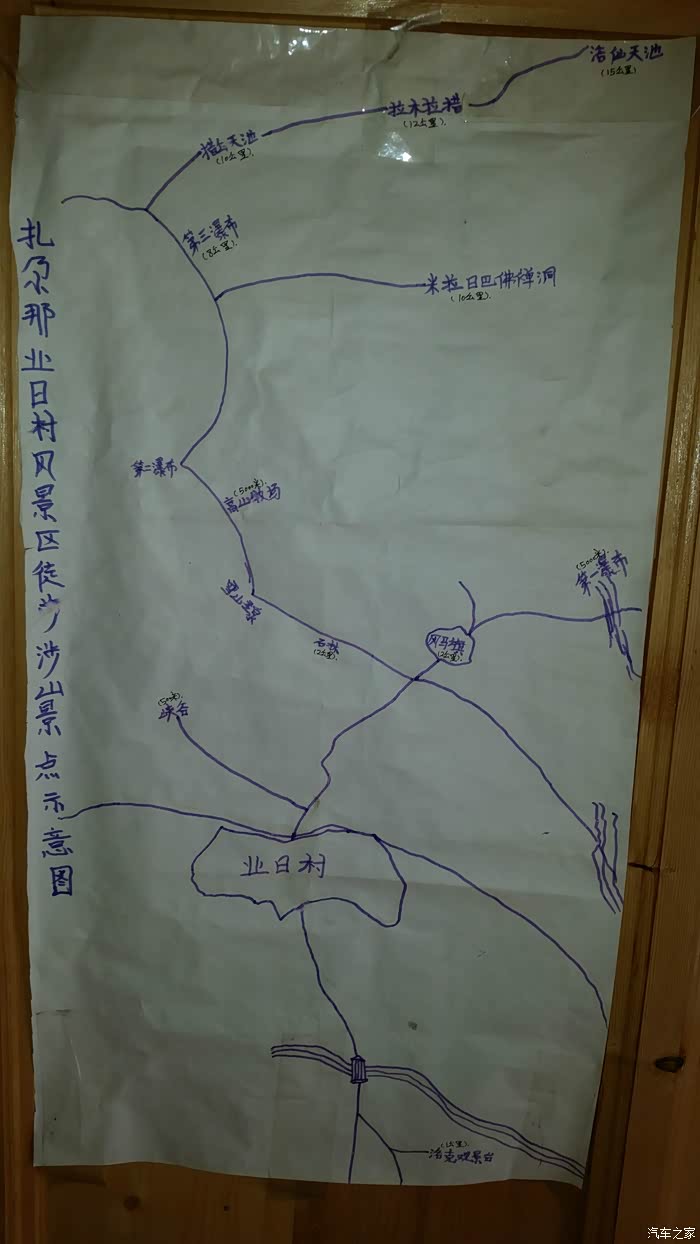 扎尕那业日村风景区徒步涉山景点示意图
洛仙天池
(15公里)
拉木拉措
(12公里)
措上天池
(10公里)
第三瀑布
(8公里)
米拉日巴佛禅洞
(10公里)
第二瀑布
(5000米)
高山牧场
(5000米)
第一瀑布
石林
(2公里)
风马旗
(2公里)
(500米)
峡谷
业日村
(1公里)
洛克观景台
汽车之家